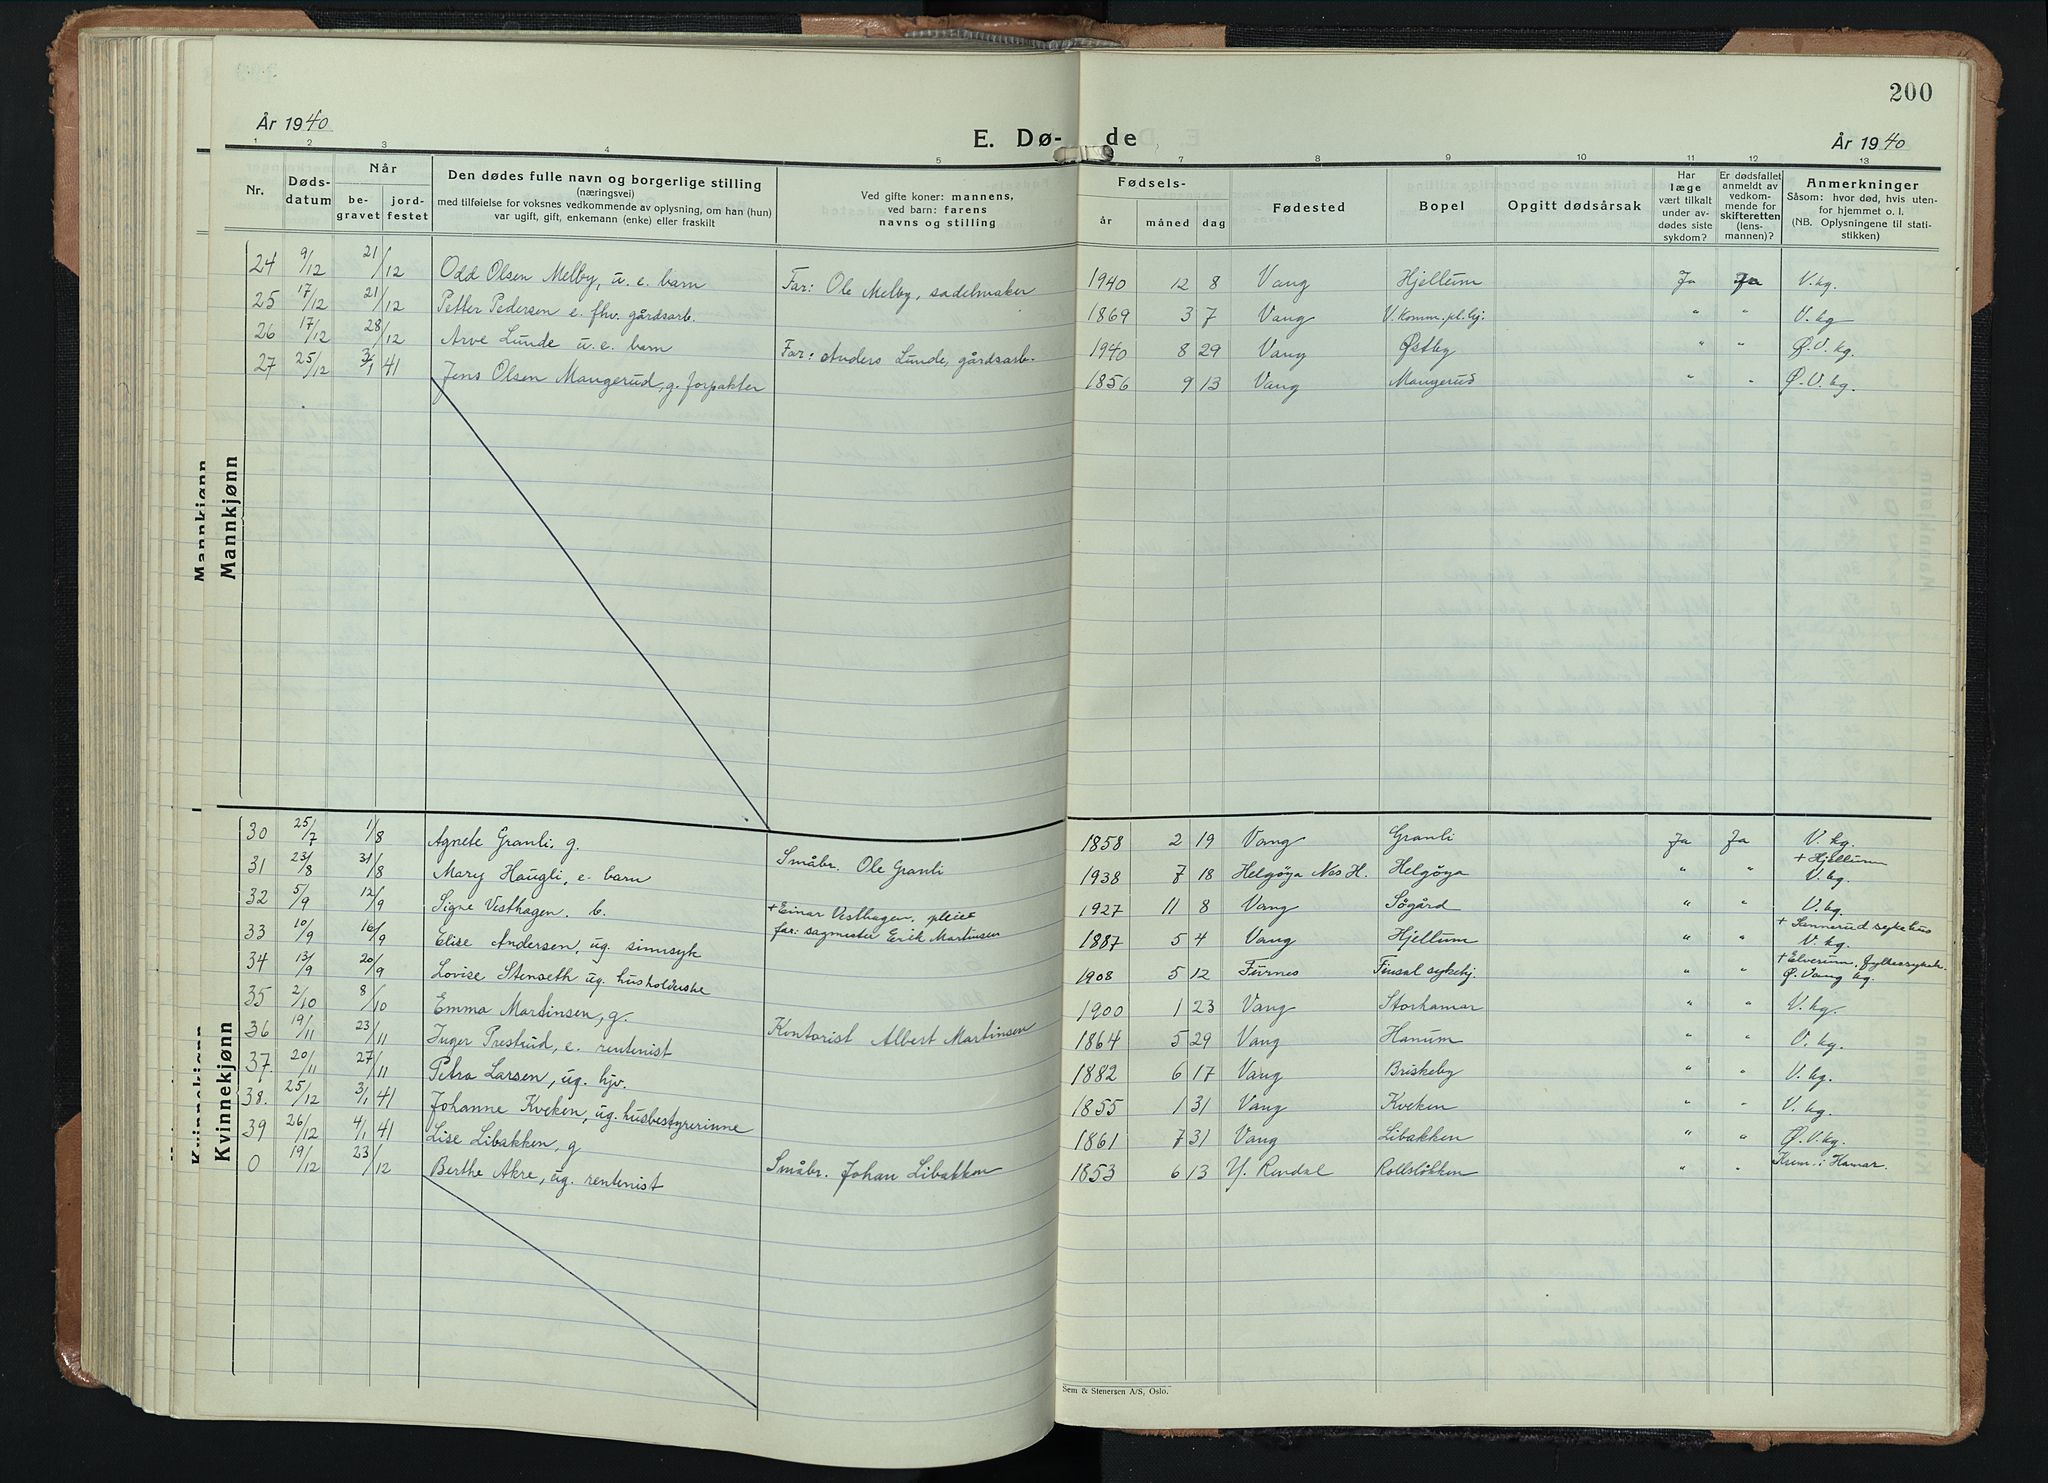 200
År 1940
E. Dø- de
År 1940
1 2 3 4 5 7 8 9 10 11 12 13
Nr. Døds-datum Når be-gravet jord-festet Den dødes fulle navn og borgerlige stilling (næringsvei) med tilføielse for voksnes vedkommende av oplysning, om han (hun) var ugift, gift, enkemann (enke) eller fraskilt Ved gifte koner: mannens, ved barn: farens navns og stilling Fødsels- år måned dag Fødested Bopel Opgitt dødsårsak Har læge vært tilkalt under av-dødes siste sykdom? Er dødsfallet anmeldt av vedkom-mende for skifteretten (lens-mannen)? Anmerkninger Såsom: hvor død, hvis uten-for hjemmet o. l. (NB. Oplysningene til stati-stikken)
Mannkjønn
Mannkjønn
24 9/12 21/12 Odd Olsen Melby, u. e. barn Far: Ole Melby, sadelmaker 1940 12 8 Vang Hjellum Ja Ja V. kg.
25 17/12 21/12 Petter Pedersen e. fhv. gårdsarb. 1869 3 7 Vang V. Komm. pl. hj. " " V. kg
26 17/12 28/12 Arve Lunde u. e. barn Far: Anders Lunde, gårdsarb. 1940 8 29 Vang Østby " " Ø. V. kg.
27 25/12 3/1 41 Jens Olsen Maugerud, g. forpakter 1856 9 13 Vang Maugerud " " Ø. V. kg.
Kvinnekjønn
Kvinnekjønn
30 25/7 1/8 Agnete Granli, g. Småbr. Ole Granli 1858 2 19 Vang Granli Ja Ja V. kg.
31 23/8 31/8 Mary Haugli, e. barn 1938 7 18 Helgøya Nes H. Helgøya " " + Hjellum V. kg.
32 5/9 12/9 Signe Vesthagen. b. + Einar Vesthagen, pleie far: sagmester Erik Martinsen 1927 11 8 Vang Søgård " " V. kg.
33 10/9 16/9 Elise Andersen, ug. sinnsyk 1887 5 4 Vang Hjellum " " + Sannerud sykehus V. kg.
34 13/9 20/9 Lovise Stenseth ug. husholderske 1908 5 12 Furnes Finsal sykehj. " " + Elverum, fylkessykeh. Ø. Vang kg.
35 2/10 8/10 Emma Martinsen, g. Kontorist Albert Martinsen 1900 1 23 Vang Storhamar " " V. kg.
36 19/11 23/11 Inger Prestrud, e. rentenist 1864 5 29 Vang Hanum " " V. kg.
37 20/11 27/11 Petra Larsen, ug. hjv. 1882 6 17 Vang Briskeby " " V. kg.
38. 25/12 3/1 41 Johanne Kveken, ug. husbestyrerinne 1855 1 31 Vang Kveken " " V. kg.
39 26/12 4/1 41 Lise Libakken, g Småbr. Johan Libakken 1861 7 31 Vang Libakken " " Ø. V. kg.
0 19/12 23/12 Berthe Akre, ug. rentenist 1853 6 13 Y. Rendal Rollsløkken " " Krem. i Hamar.
Sem & Stenersen A/S, Oslo.